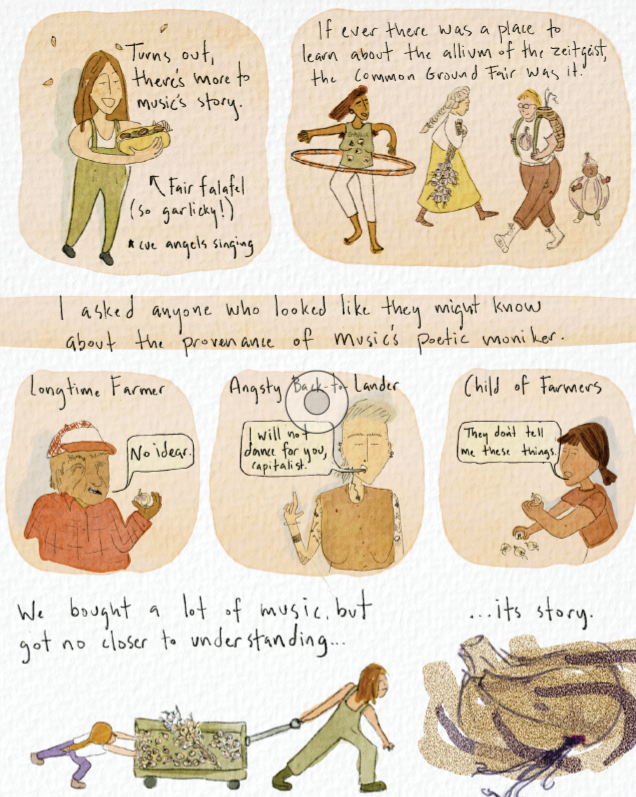 Turns out,
there's more to
music's story.
Fair falafel
(so garlicky!)
*cue angels singing
If ever there was a place to
learn about the allium of the zeitgeist,
the Common Ground Fair was it.
I asked anyone who looked like they might know
about the provenance of Music's poetic moniker.
Longtime Farmer
No idear.
Angsty Back-to-Lander
I will not
dance for you,
capitalist.
Child of Farmers
They don't tell
me these things.
We bought a lot of music, but
got no closer to understanding...
...its story.